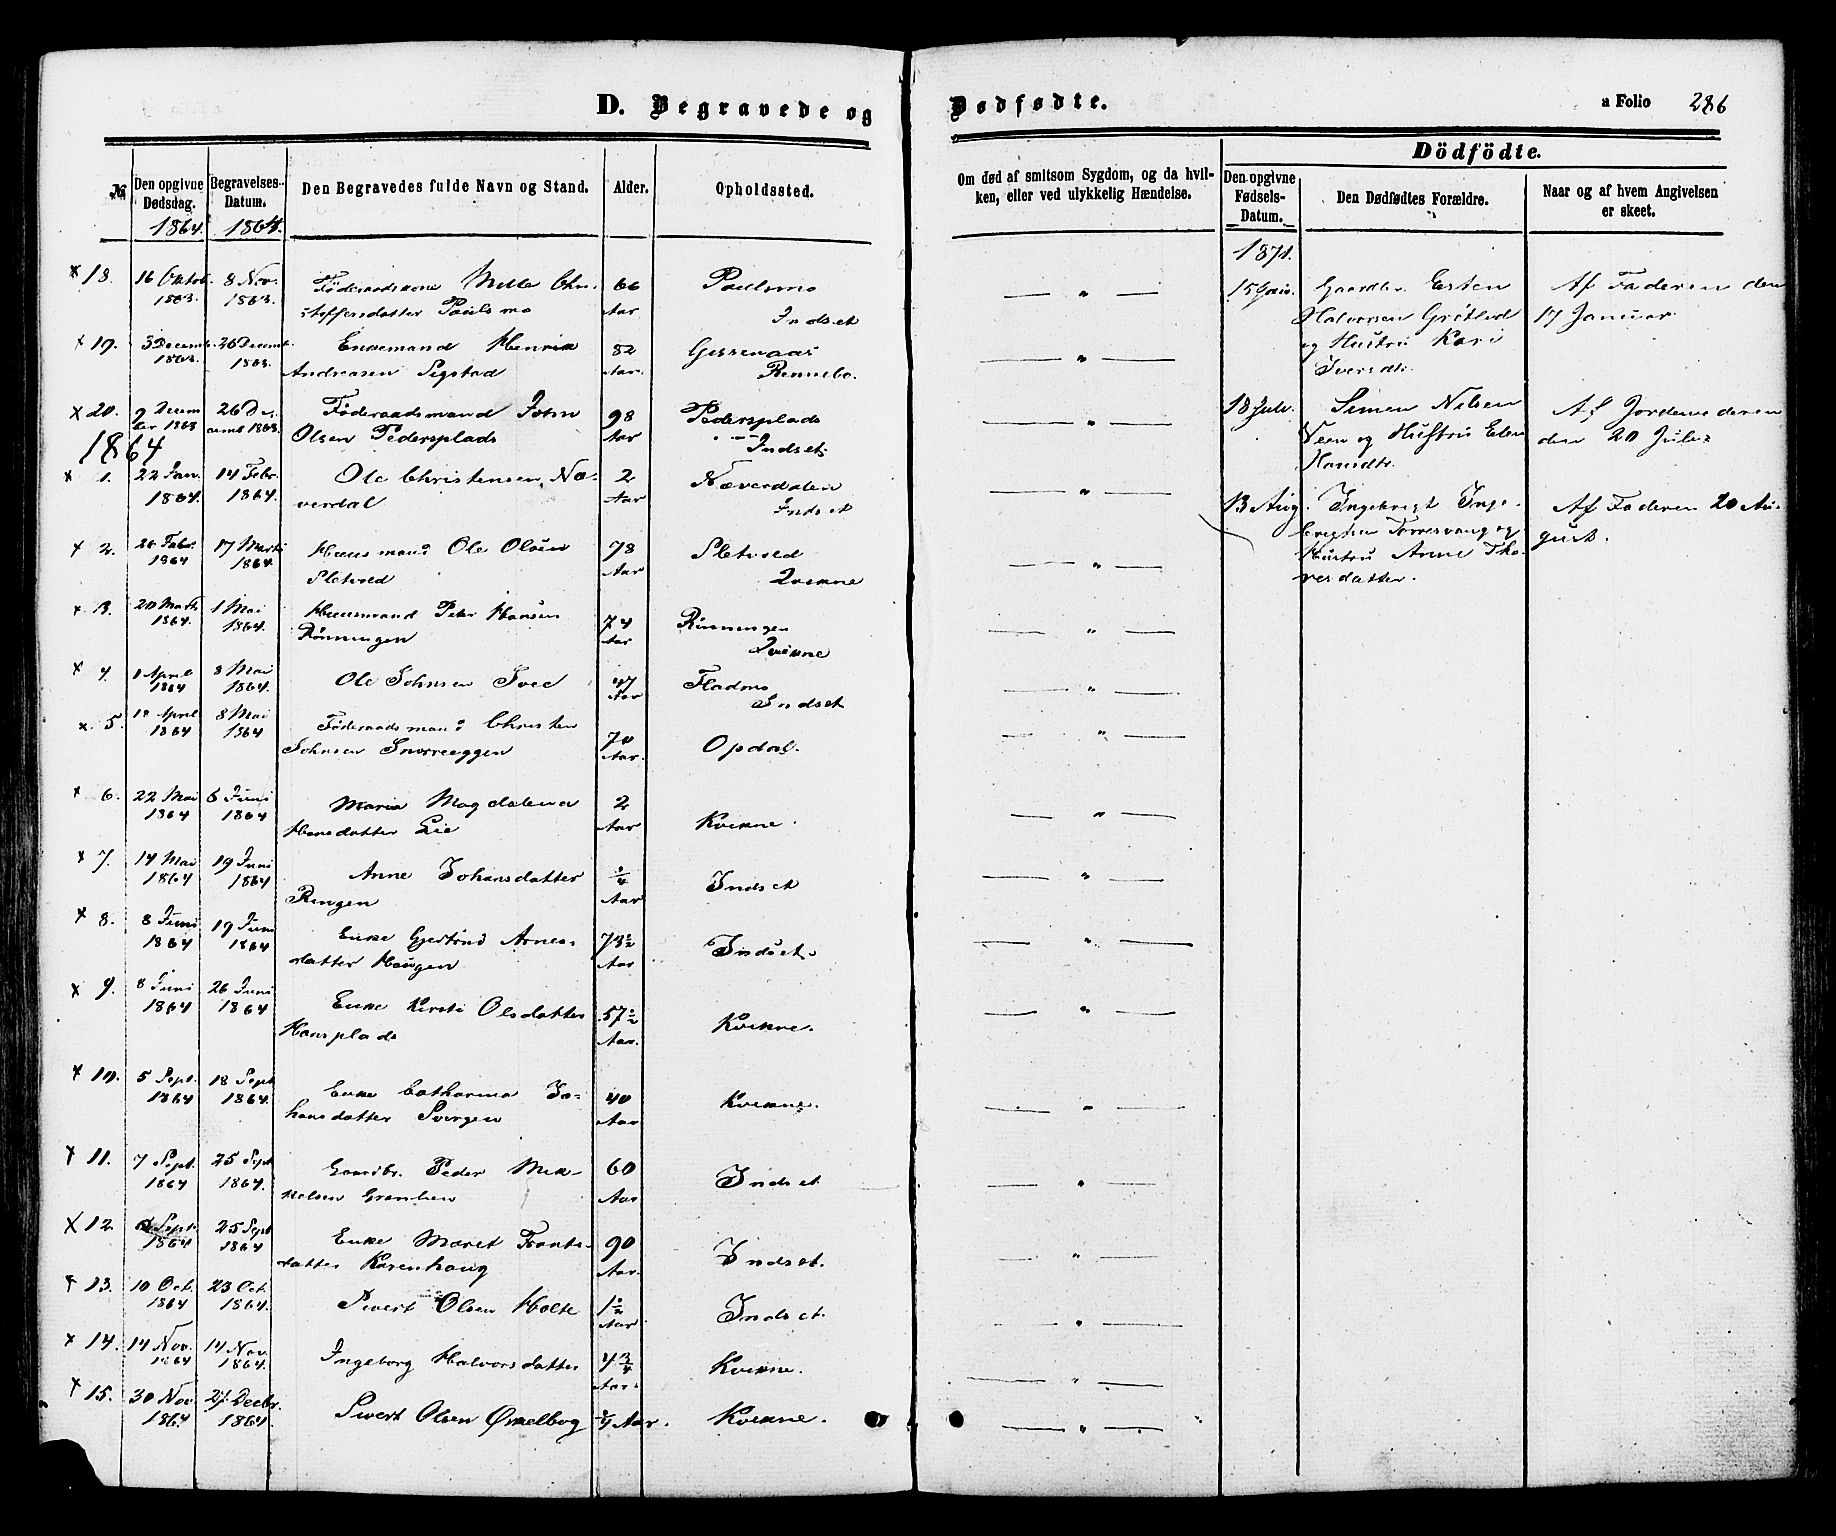 D. Begravede og Dødfødte.
a Folio 286
№
Den opgivne Dødsdag. 1864.
Begravelses-Datum. 1864.
Den Begravedes fulde Navn og Stand.
Alder.
Opholdssted.
Om død af smitsom Sygdom, og da hvil-
ken, eller ved ulykkelig Hændelse.
Dödfödte.
Den opgivne Fødsels-Datum.
Den Dødfødtes Forældre.
Naar og af hvem Angivelsen er skeet.
x 18. 16 Oktob. 1863. 8 Nov. 1863. Føderaadskone Mette Chri- 66 Aar Paulsmo
stoffersdatter Paulsmo Indset
x 19. 3 Decemb. 1863. 26 Decemb. 1863. Enkemand Henrik 82 Aar.
Andreasen Segstad Rennebo.
x 20. 9 Decem ber 1863 26 De- cemb 1863. Føderaadsmand John 98 Aar Pedersplads
Olsen Pedersplads Indset
1864
x 1. 22 Jan. 1864. 14 Febr. 1864. Ole Christensen Næ- 2 Aar Næverdalen
verdal Indset
x 2. 26 Febr. 1864 17 Marts 1864. Huusmand Ole Olsen 78 Aar Sletvold
Sletvold Qvikne
x 3. 20 Marts 1864. 1 Mai 1864. Huusmand Peter Hansen 74 Aar Rønningen
Rønningen Qvikne
x 4. 1 April 1864 8 Mai 1864. Ole Johnsen 47 Aar Fladmo
Indset
x 5. 18 April 1864 8 Mai 1864 Føderaadsmand Christen 70 Aar. Opdal.
Johnsen Snorreeggen
x 6. 22 Mai 1864 6 Juni 1864 Maria Magdalena 2 Aar Kvikne.
Hansdatter Lie
x 7. 14 Mai 1864 19 Juni 1864 Anne Johansdatter ¼ Aar Indset
Ringen
x 8. 8 Juni 1864 19 Juni 1864 Enke Gjertrud Arnes- 73½ Aar Indset.
datter Haugen
x 9. 8 Juni 1864 26 Juni 1864 Enke Kirsti Olsdatter 57½ Aar. Kvikne.
Hansplads
x 10. 5 Sept. 1864 18 Sept 1864. Enke Catharina Jo- 40 Aar Kvikne.
hansdatter
x 11. 7 Sept. 1864 25 Sept 1864. Gaardbr. Peder Mik- 60 Aar Indset
kelsen Granlien
x 12. Sept. 1864 25 Sept 1864 Enke Maret Frants- 90 Aar. Indset.
datter Kosenhaug
x 13. 10 Oct. 1864 23 Oct. 1864. Sivert Olsen Holte 1½ Aar Indset.
x 14. 14 Nov. 1864 14 Nov. 1864. Ingeborg Halvorsdatter 4¾ Aar. Kvikne.
x 15. 30 Nov. 1864 Decbr. 1864 Sivert Olsen Ørkelbog ¼ Aar. Kvikne.
1871.
15 Jan. Gaardbr. Esten Af Faderen den
Halvorsen Grøtlid 17 Januar.
og Hustru Kari
Iversdtr.
18 Juli. Simen Nilsen Af Jordemoderen
og Hustru Elen den 20 Juli.
13 Aug. Ingebrigt Inge- Af Faderen 20 Au-
brigtsen Torresvang og gust.
Hustru Anne Tho-
resdatter.